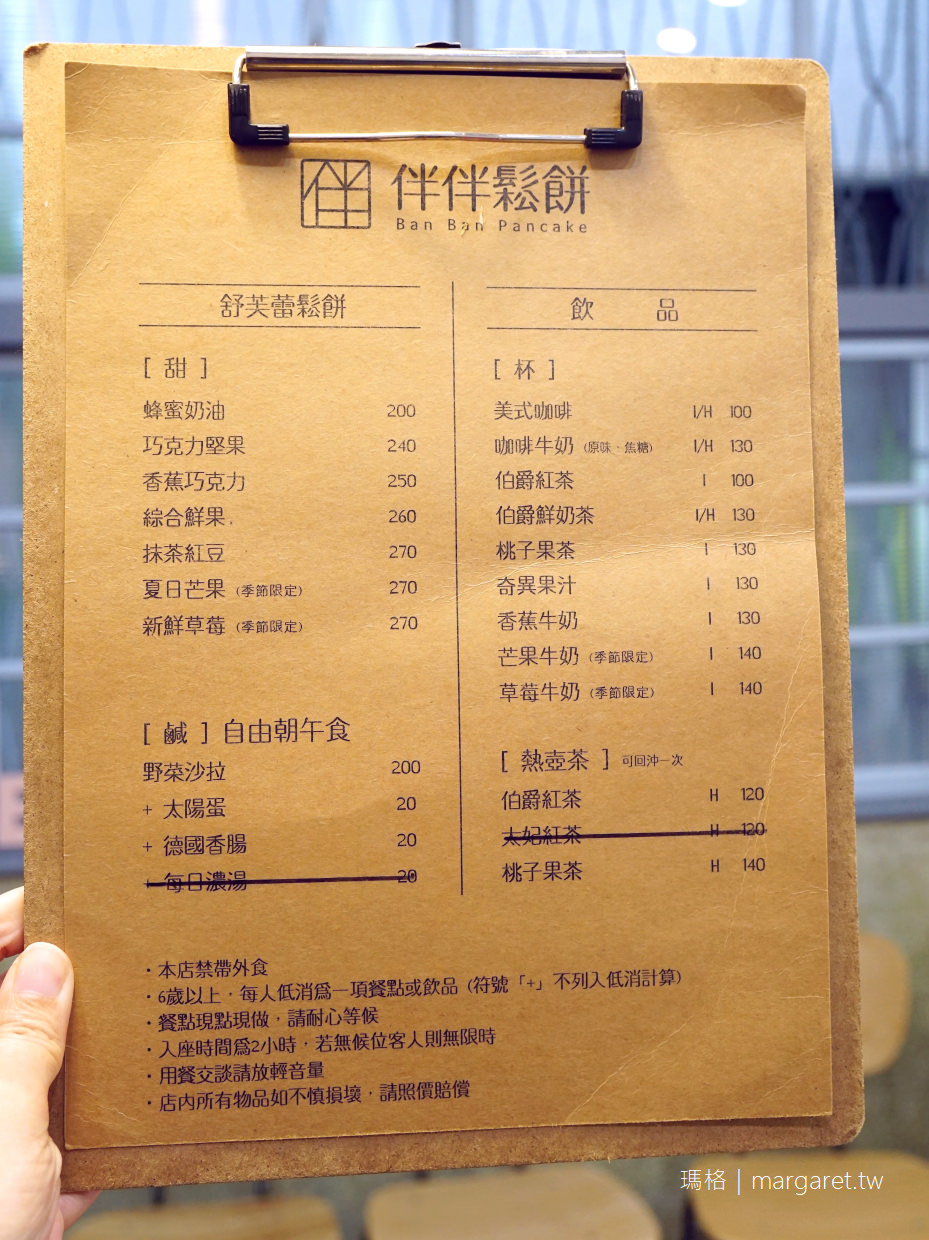 伴伴鬆餅
Ban Ban Pancake
舒芙蕾鬆餅
[ 甜 ]
蜂蜜奶油 200
巧克力堅果 240
香蕉巧克力 250
綜合鮮果 260
抹茶紅豆 270
夏日芒果 (季節限定) 270
新鮮草莓 (季節限定) 270
[ 鹹 ] 自由朝午食
野菜沙拉 200
+ 太陽蛋 20
+ 德國香腸 20
+ 每日濃湯 20
飲 品
[ 杯 ]
美式咖啡 I/H 100
咖啡牛奶 (原味、焦糖) I/H 130
伯爵紅茶 I 100
伯爵鮮奶茶 I/H 130
桃子果茶 I 130
奇異果汁 I 130
香蕉牛奶 I 130
芒果牛奶 (季節限定) I 140
草莓牛奶 (季節限定) I 140
[ 熱壺茶 ] 可回沖一次
伯爵紅茶 H 120
太妃紅茶 H 120
桃子果茶 H 140
・本店禁帶外食
・6歲以上，每人低消為一項餐點或飲品 (符號「+」不列入低消計算)
・餐點現點現做，請耐心等候
・入座時間為2小時，若無候位客人則無限時
・用餐交談請放輕音量
・店內所有物品如不慎損壞，請照價賠償
瑪格｜margaret.tw